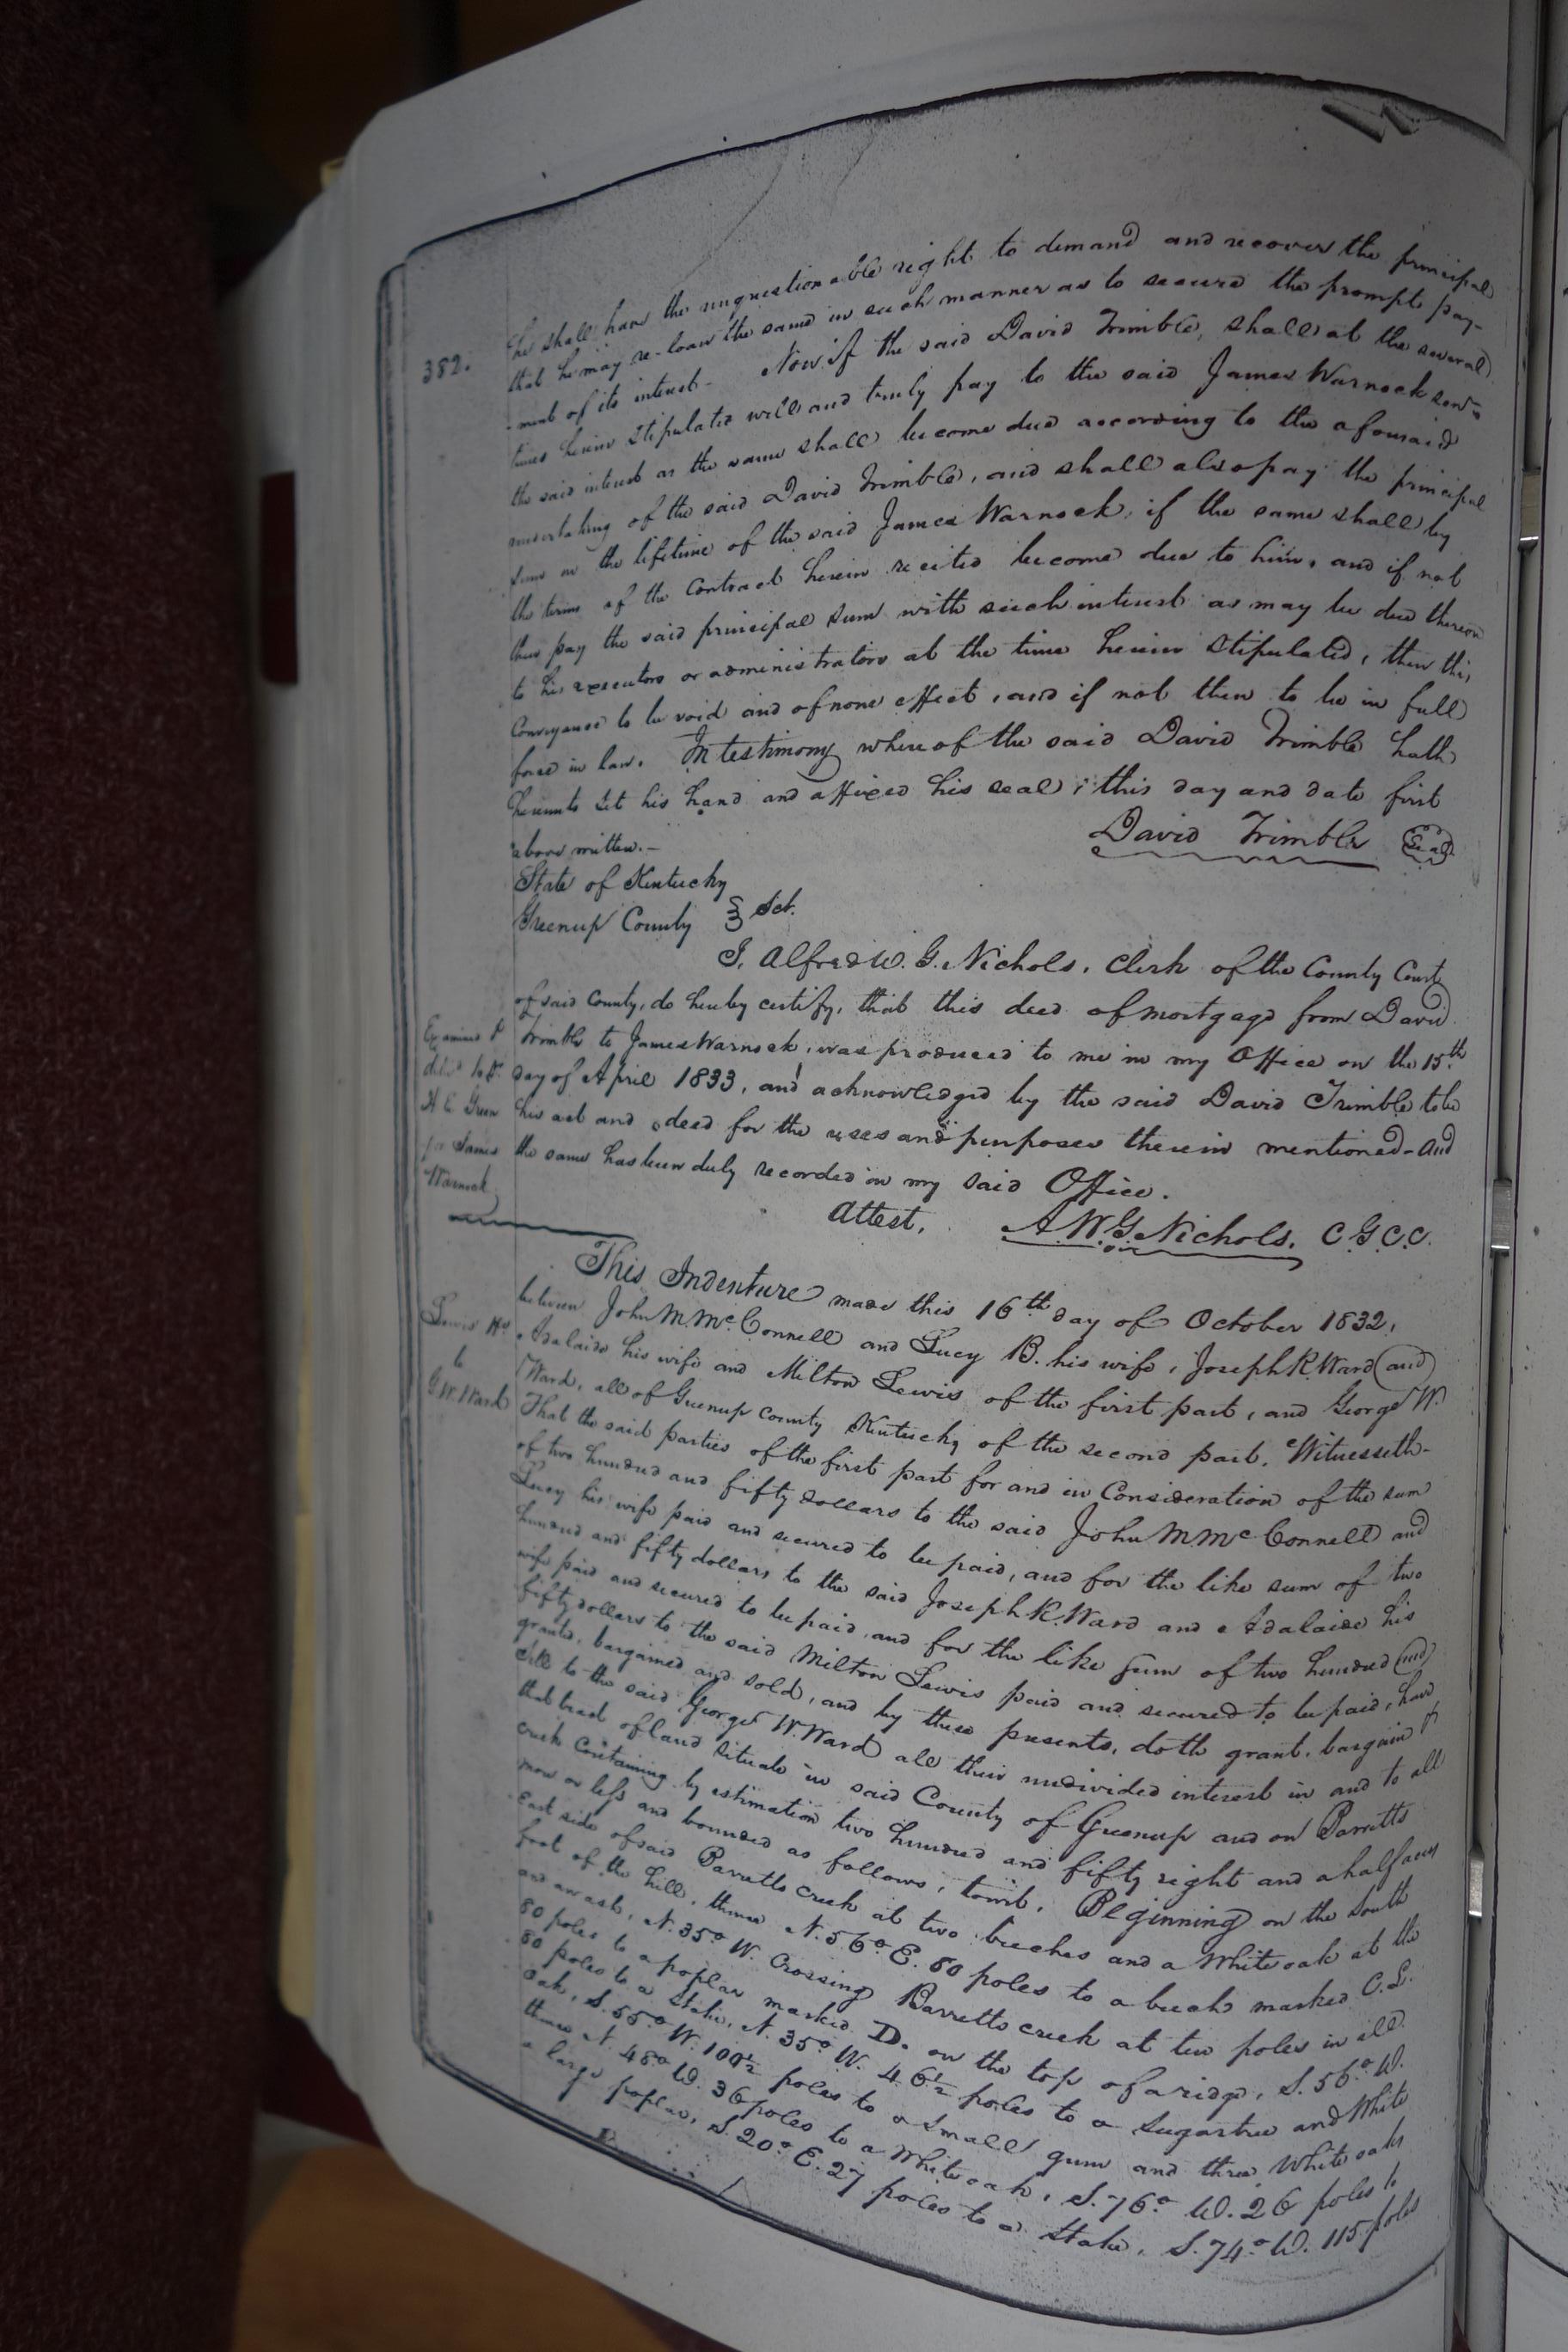 382.
he shall have the unquestionable right to demand and recover the principal
that he may re-loan the same in such manner as to secure the prompt pay-
-ment of its interest - Now if the said David Trimble, shall at the several
times herein stipulated well and truly pay to the said James Warnock
the said interest as the same shall become due according to the aforesaid
undertaking of the said David Trimble, and shall also pay the principal
sum in the lifetime of the said James Warnock, if the same shall by
the terms of the contract herein recited become due to him, and if not
then pay the said principal sum with such interest as may be due thereon
to his executors or administrators at the time herein stipulated, then this
conveyance to be void and of none effect, and if not then to be in full
force in law. In testimony whereof the said David Trimble hath
hereunto set his hand and affixed his seal, this day and date first
above written.-
David Trimble Seal
State of Kentucky
Greenup County } Sct.
I, Alfred W. G. Nichols, Clerk of the County Court
of said County, do hereby certify, that this deed of mortgage from David
Trimble to James Warnock, was produced to me in my Office on the 15th
day of April 1833, and acknowledged by the said David Trimble to be
his act and deed for the uses and purposes therein mentioned - and
the same has been duly recorded in my said Office.
Attest, A. W. G. Nichols, C.G.C.C.
Examined &
deld to
H E Green
for James
Warnock
This Indenture made this 16th day of October 1832,
between John M. McConnell and Lucy B. his wife, Joseph R. Ward and
Adalaide his wife and Milton Lewis of the first part, and George W.
Ward, all of Greenup County Kentucky of the second part. Witnesseth-
Lewis
to
G. W. Ward
That the said parties of the first part for and in Consideration of the sum
of two hundred and fifty dollars to the said John M. McConnell and
Lucy his wife paid and secured to be paid, and for the like sum of two
hundred and fifty dollars to the said Joseph R. Ward and Adalaide his
wife paid and secured to be paid, and for the like sum of two hundred and
fifty dollars to the said Milton Lewis paid and secured to be paid, have
granted, bargained and sold, and by these presents, doth grant, bargain &
sell to the said George W. Ward all their undivided interest in and to all
that tract of land situate in said County of Greenup and on Barretts
creek containing by estimation two hundred and fifty eight and a half acres
more or less and bounded as follows, towit. Beginning on the South
East side of said Barretts creek at two beeches and a White oak at the
foot of the hill, thence N. 56° E. 80 poles to a beech marked C. L.
and an ash, N. 35° W. Crossing Barretts creek at ten poles in all
80 poles to a poplar marked D. on the top of a ridge, S. 56° W.
80 poles to a stake, N. 35° W. 46½ poles to a Sugartree and White
oak, S. 55° W. 100½ poles to a small gum and three White oaks
thence N. 48° W. 36 poles to a White oak, S. 76° W. 26 poles to
a large poplar, S. 20° E. 27 poles to a stake, S. 74° W. 115 poles